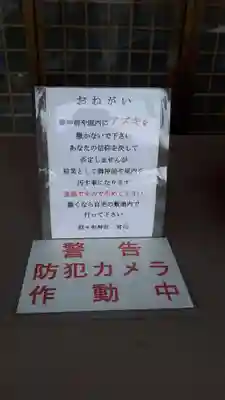 おねがい
御神前や境内にアズキを
撒かないで下さい
あなたの信仰を決して
否定しませんが
結果として御神前や境内を
汚す事になります
迷惑ですので止めて下さい
撒くなら自宅の敷地内で
行って下さい
警告
防犯カメラ
作動中